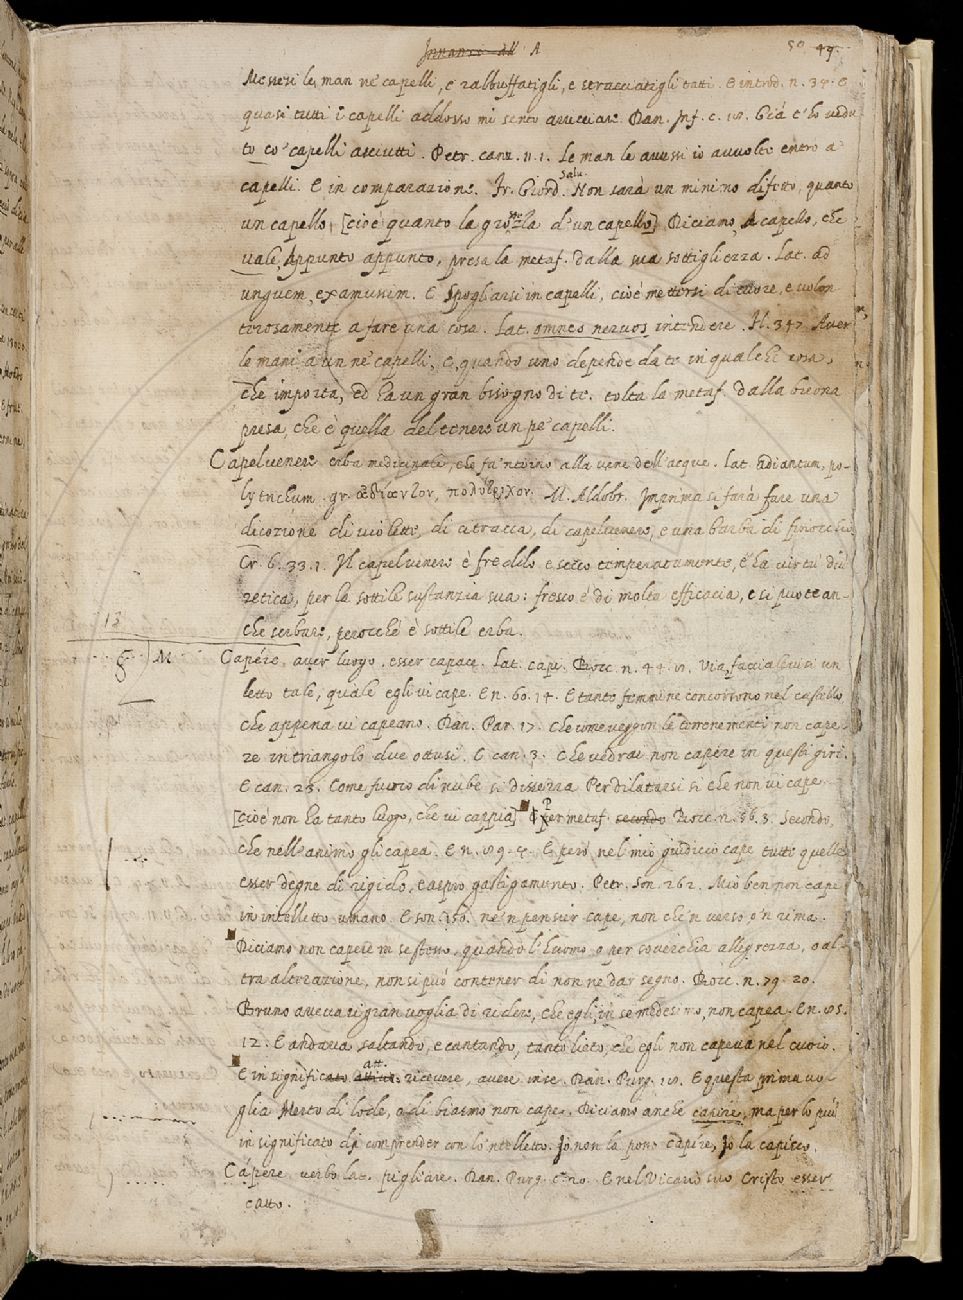 Innanzi all' A 50 49.
Messesi le man ne' capelli, e rabbuffatigli, e stracciatigli tutti. E introd. n. 34. E
quasi tutti i capelli addosso mi sento arricciare. Dan. Inf. c. 18. Già t'ho vedu
to co' capelli asciutti. Petr. canz. 11. 1. Le man le avess' io avvolte entro a'
capelli. E in comparazione. Fr. Giord. Salu. Non sarà un minimo difetto, quanto
un capello, [cioè quanto la grossezza d'un capello] Diciamo, A capello, che
vale, Appunto appunto, presa la metaf. dalla sua sottigliezza. Lat. ad
unguem, examussim. E Spogliarsi in capelli, cioè mettersi di cuore, e volon
terosamente a fare una cosa. Lat. omnes nervos intendere. H. 347. Aver
le mani a un ne' capelli, è, quando uno depende da te in qualche cosa,
che importa, ed ha un gran bisogno di te. tolta la metaf. dalla buona
presa, che è quella del tenere un pe' capelli.
Capelvenere erba medicinale, che fa 'ntorno alla vene dell'acque. Lat. Adiantum, po-
lytrichum. gr. ἀδίαντον, πολύτριχον. M. Aldobr. Imprima si farà fare una
dicozione di violette, di citracca, di capelvenere, e una barba di finocchio
Cr. 6. 33. 1. Il capelvenere è freddo, e secco temperatamente, e ha virtù diu
retica, per la sottile sustanzia sua: fresco è di molta efficacia, e si puote an-
che serbare, perocchè è sottile erba.
13
g M Capére. aver luogo. esser capace. Lat. capi. Bocc. n. 44. 8. Via, faccialevisi un
letto tale, quale egli vi cape. E n. 60. 14. E tanto femmine concorsono nel castello
che appena vi capeano. Dan. Par. 17. Che come veggion le terrene menti non cape-
re in triangolo due ottusi. E can. 3. Che vedrai non capere in questi giri.
E can. 23. Come fuoco di nube si disserra Per dilatarsi sì che non vi cape
[cioè non ha tanto luogo, che vi cappia] Per metaf. secondo Bocc. n. 36. 3. Secondo,
che nell'animo gli capea. E n. 89. 5. E però, nel mio giudicio cape tutte quelle
esser degne di rigido, e aspro gastigamento. Petr. Son. 262. Mio ben non cape
in intelletto umano. E son. 156. nè 'n pensier cape, non che 'n verso o 'n rima.
Diciamo non capere in se stesso, quando l'huomo, o per soverchia allegrezza, o al-
tra alterazione, non si può contener di non ne dar segno. Bocc. n. 79. 20.
Bruno aveva sì gran voglia di ridere, che egli, in se medesimo, non capea. E n. 85.
12. E andava saltando, e cantando, tanto lieto, che egli non capeva nel cuoio.
E in significato attivo. att. ricevere, avere in se. Dan. Purg. 18. E questa prima vo
glia Merto di lode, o di biasmo non cape. Diciamo anche capire, ma per lo più
in significato di comprender con lo 'ntelletto. Io non la posso capire, Io la capisco.
Cápere. verbo lat. pigliare. Dan. Purg. c. 20. E nel Vicario suo Cristo esser
catto.